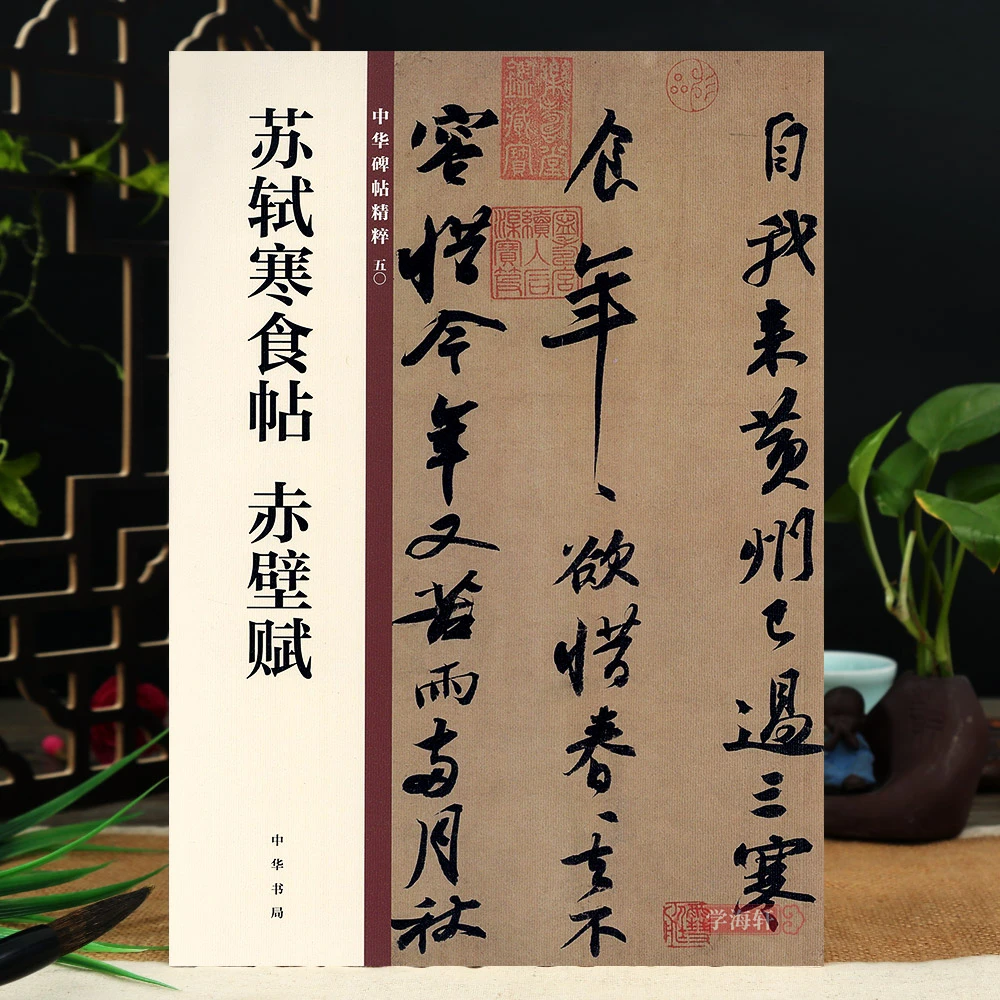 苏轼寒食帖 赤壁赋
中华书局
中华碑帖精粹 五〇
自我来黄州已過三寒
食年、欲惜春、去不
容惜今年又苦雨两月秋
寧壽宮
續入石
渠寶笈
学海轩